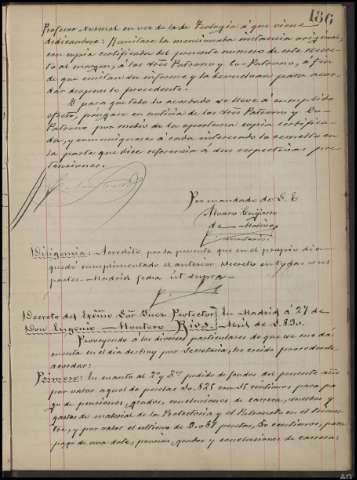 186
Profesor Normal en vez de la de Teología á que viene
dedicandose: Remitase la mencionada instancia original,
con copia certificada del presente número de este decre-
to al margen, á los Sres Patrono y Co-Patrono, á fin
de que emitan su informe y la devuelvan para acor-
dar después lo procedente.
Y para que todo lo acordado se lleve á cumplido
efecto, pongase en noticia de los Sres Patrono y Co-
Patrono por medio de la oportuna copia certifica-
da, y comuniquese á cada interesado lo resuelto en
la parte que dice referencia á sus respectivas pre-
tensiones.
Por mandado de S. E.
Alvaro Quijano
de
Secretario
Diligencia: Acredito por la presente que en el propio dia
quedó cumplimentado el anterior decreto en todas sus
partes. Madrid fecha ut supra.
Decreto del Exmo Sor Juez Protector En Madrid á 27 de
Don Eugenio Montero Rios. Abril de 1.890.
Proveyendo á los diversos particulares de que se ve dá
cuenta en el dia de hoy por Secretaria, he creido procedente
acordar:
Primero: En cuanto al 2º y 3er pedido de fondos del presente año
por valor aquel de pesetas 20.525 con 35 centimos para pa-
go de pensiones, grados, conclusiones de carrera, sueldos y
gastos de material de la Protectoria y el Patronato en el trimes-
tre, y por valor el ultimo de 2.067 pesetas, 50 centimos, para
pago de una dote, pensión, grados y conclusiones de carrera;